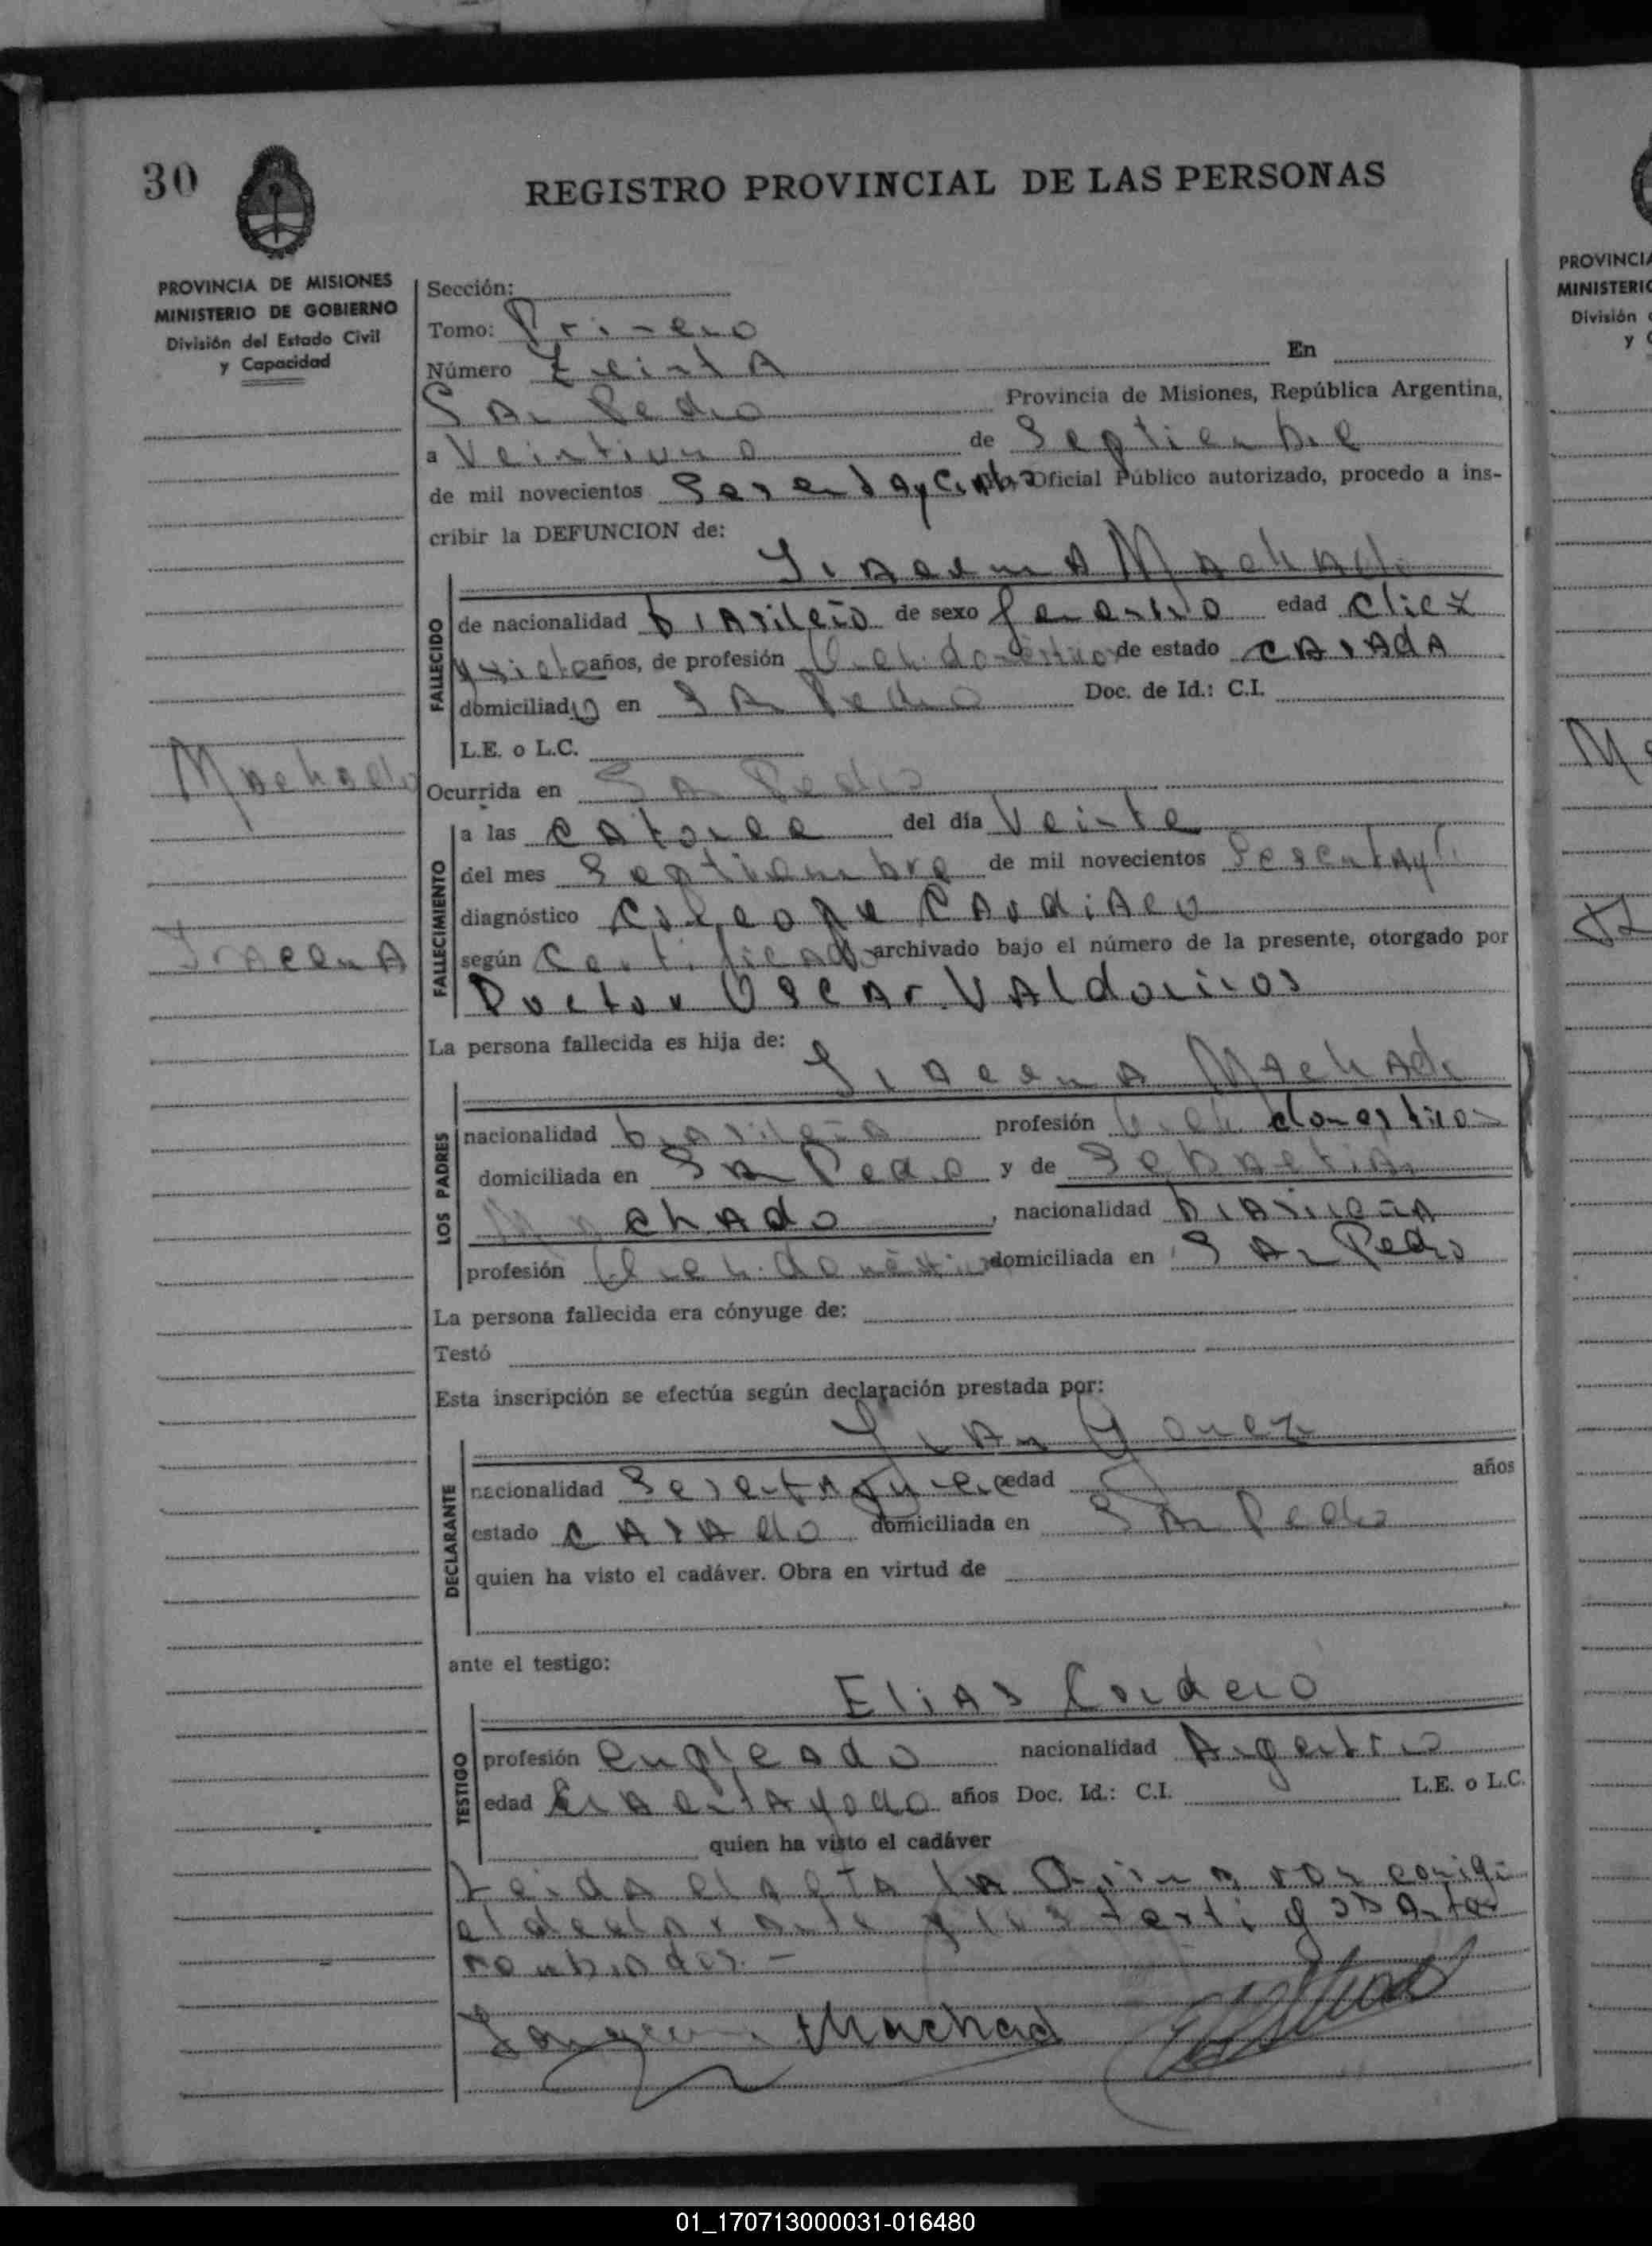 30
REGISTRO PROVINCIAL DE LAS PERSONAS
PROVINCIA DE MISIONES
MINISTERIO DE GOBIERNO
División del Estado Civil
y Capacidad
Sección:
Tomo: Primero
Número treinta En
San Pedro Provincia de Misiones, República Argentina,
a Veintiuno de Septiembre
de mil novecientos Oficial Público autorizado, procedo a ins-
cribir la DEFUNCION de:
Machado
FALLECIDO
de nacionalidad brasileño de sexo femenino edad diez
y siete años, de profesión de estado casada
domiciliado en San Pedro Doc. de Id.: C.I.
L.E. o L.C.
Machado
Ocurrida en San Pedro
FALLECIMIENTO
a las catorce del día Veinte
del mes Septiembre de mil novecientos
diagnóstico Cardiaco
Iracema
según Certificado archivado bajo el número de la presente, otorgado por
Doctor Oscar
La persona fallecida es hija de:
Machado
LOS PADRES
nacionalidad brasileña profesión domesticos
domiciliada en San Pedro y de Sebastian
Machado, nacionalidad brasileña
profesión domiciliada en San Pedro
La persona fallecida era cónyuge de:
Testó
Esta inscripción se efectúa según declaración prestada por:
DECLARANTE
nacionalidad edad años
estado casado domiciliada en San Pedro
quien ha visto el cadáver. Obra en virtud de
ante el testigo:
Elias Cordero
TESTIGO
profesión empleado nacionalidad Argentino
edad años Doc. Id.: C.I. L.E. o L.C.
quien ha visto el cadáver
Leida el acta la
el declarante y los testigos
Machado
PROVINCIA
MINISTERIO
División
y
01_170713000031-016480